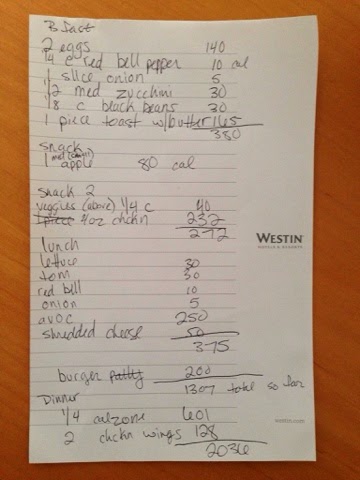 B fast
2 eggs 140
1/4 c red bell pepper 10 cal
1 slice onion 5
1/2 med zucchini 30
1/8 c black beans 30
1 piece toast w/butter 165
380
snack
1 med apple 80 cal
snack 2
veggies (above) 1/4 c 40
4oz chckn 232
272
lunch
lettuce 30
tom 30
red bell 10
onion 5
avoc 250
shredded cheese 50
375
WESTIN
HOTELS & RESORTS
burger patty 200
1307 total so far
Dinner
1/4 calzone 601
2 chckn wings 128
2036
westin.com